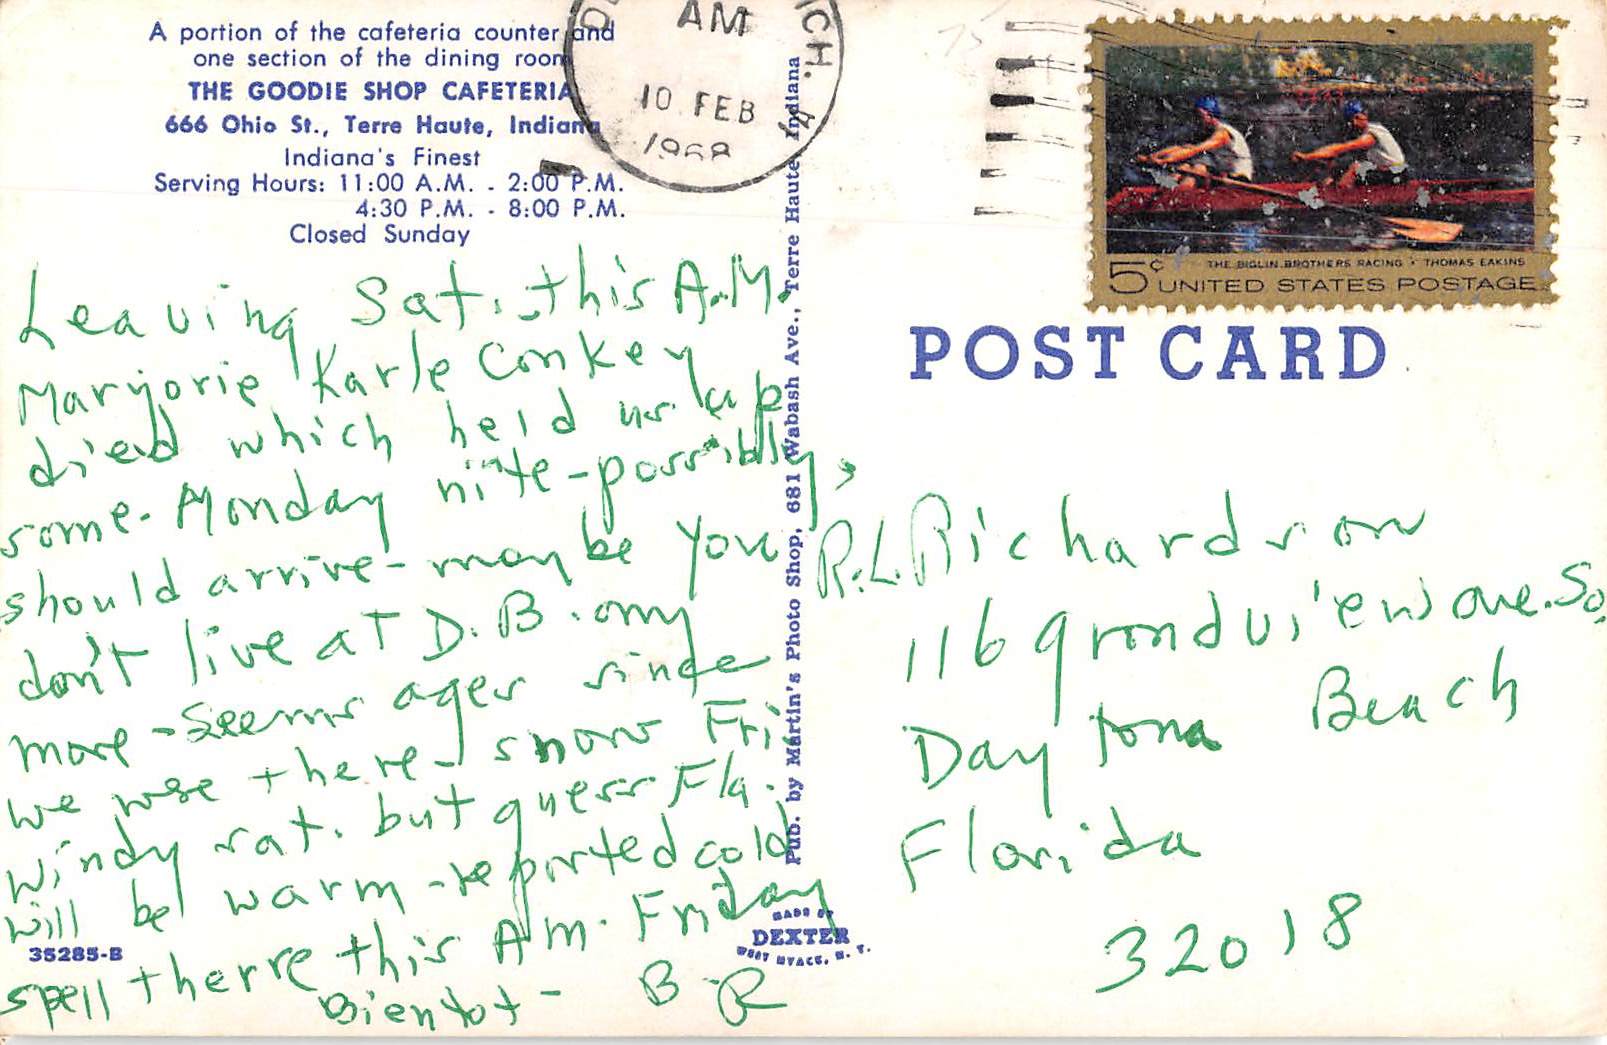 A portion of the cafeteria counter and
one section of the dining room
THE GOODIE SHOP CAFETERIA
666 Ohio St., Terre Haute, Indiana
Indiana's Finest
Serving Hours: 11:00 A.M. - 2:00 P.M.
4:30 P.M. - 8:00 P.M.
Closed Sunday
Leaving Sat. this A.M.
Marjorie Karle Conkey
died which held us up
some. Monday nite-possibly,
should arrive-maybe you
don't live at D.B. any
more-Seems ages since
we wse there-snow Fri
windy sat. but guess Fla.
will be warm-reported cold
spell therre this A.M. Friday
Bientot- B-R
35285-B
Pub. by Martin's Photo Shop, 681 Wabash Ave., Terre Haute, Indiana
MADE BY
DEXTER
WEST NYACK, N. Y.
AM
10 FEB
1968
ICH.
5¢
THE BIGLIN BROTHERS RACING • THOMAS EAKINS
UNITED STATES POSTAGE
POST CARD
R.L. Richardson
116 grandview ave. So.
Daytona Beach
Florida
32018